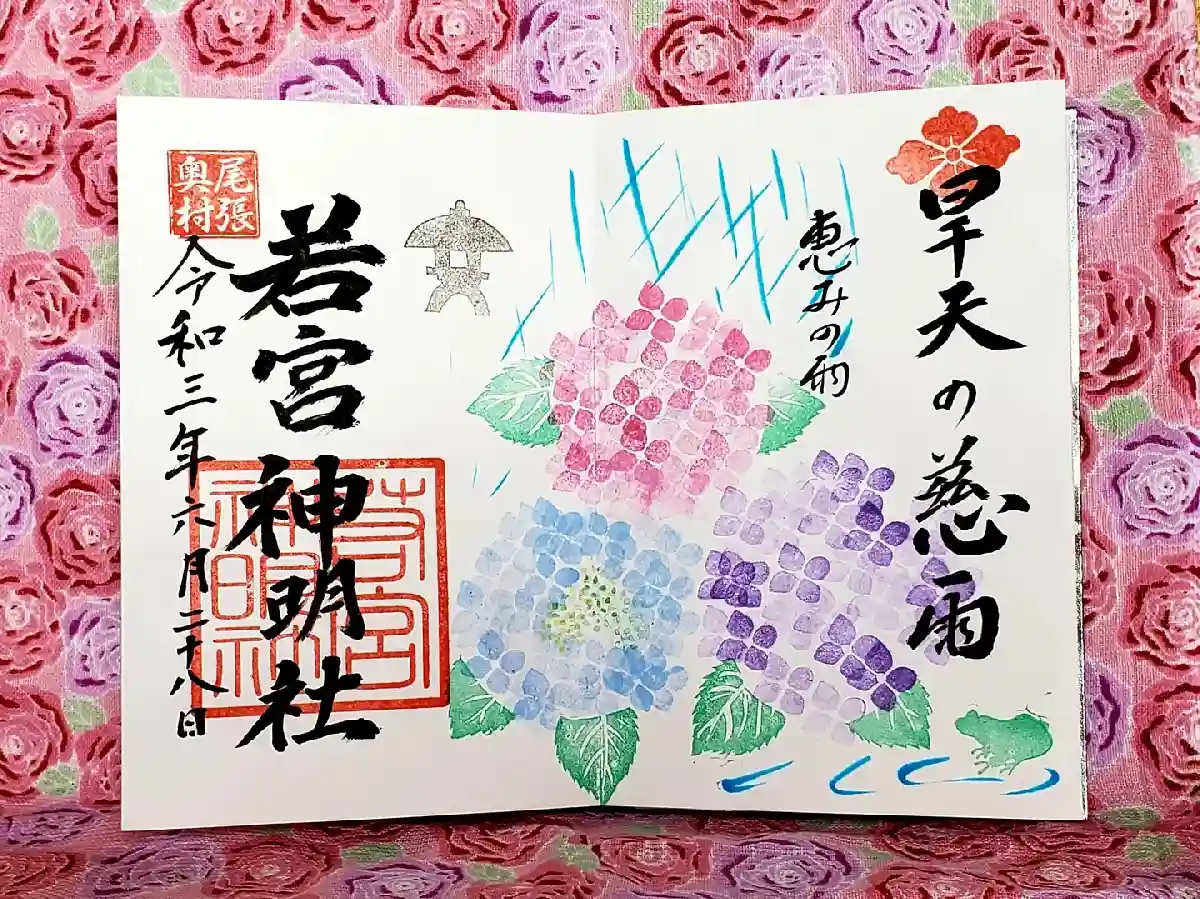 旱天の慈雨
恵みの雨
若宮神明社
若宮
神明社
尾張
奥村
令和三年六月二十八日